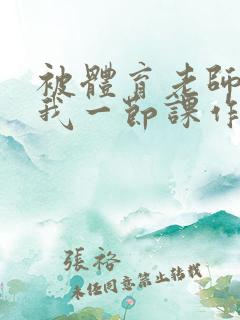 被體育老師
我一節課作
張裕
未任同意禁止轉載